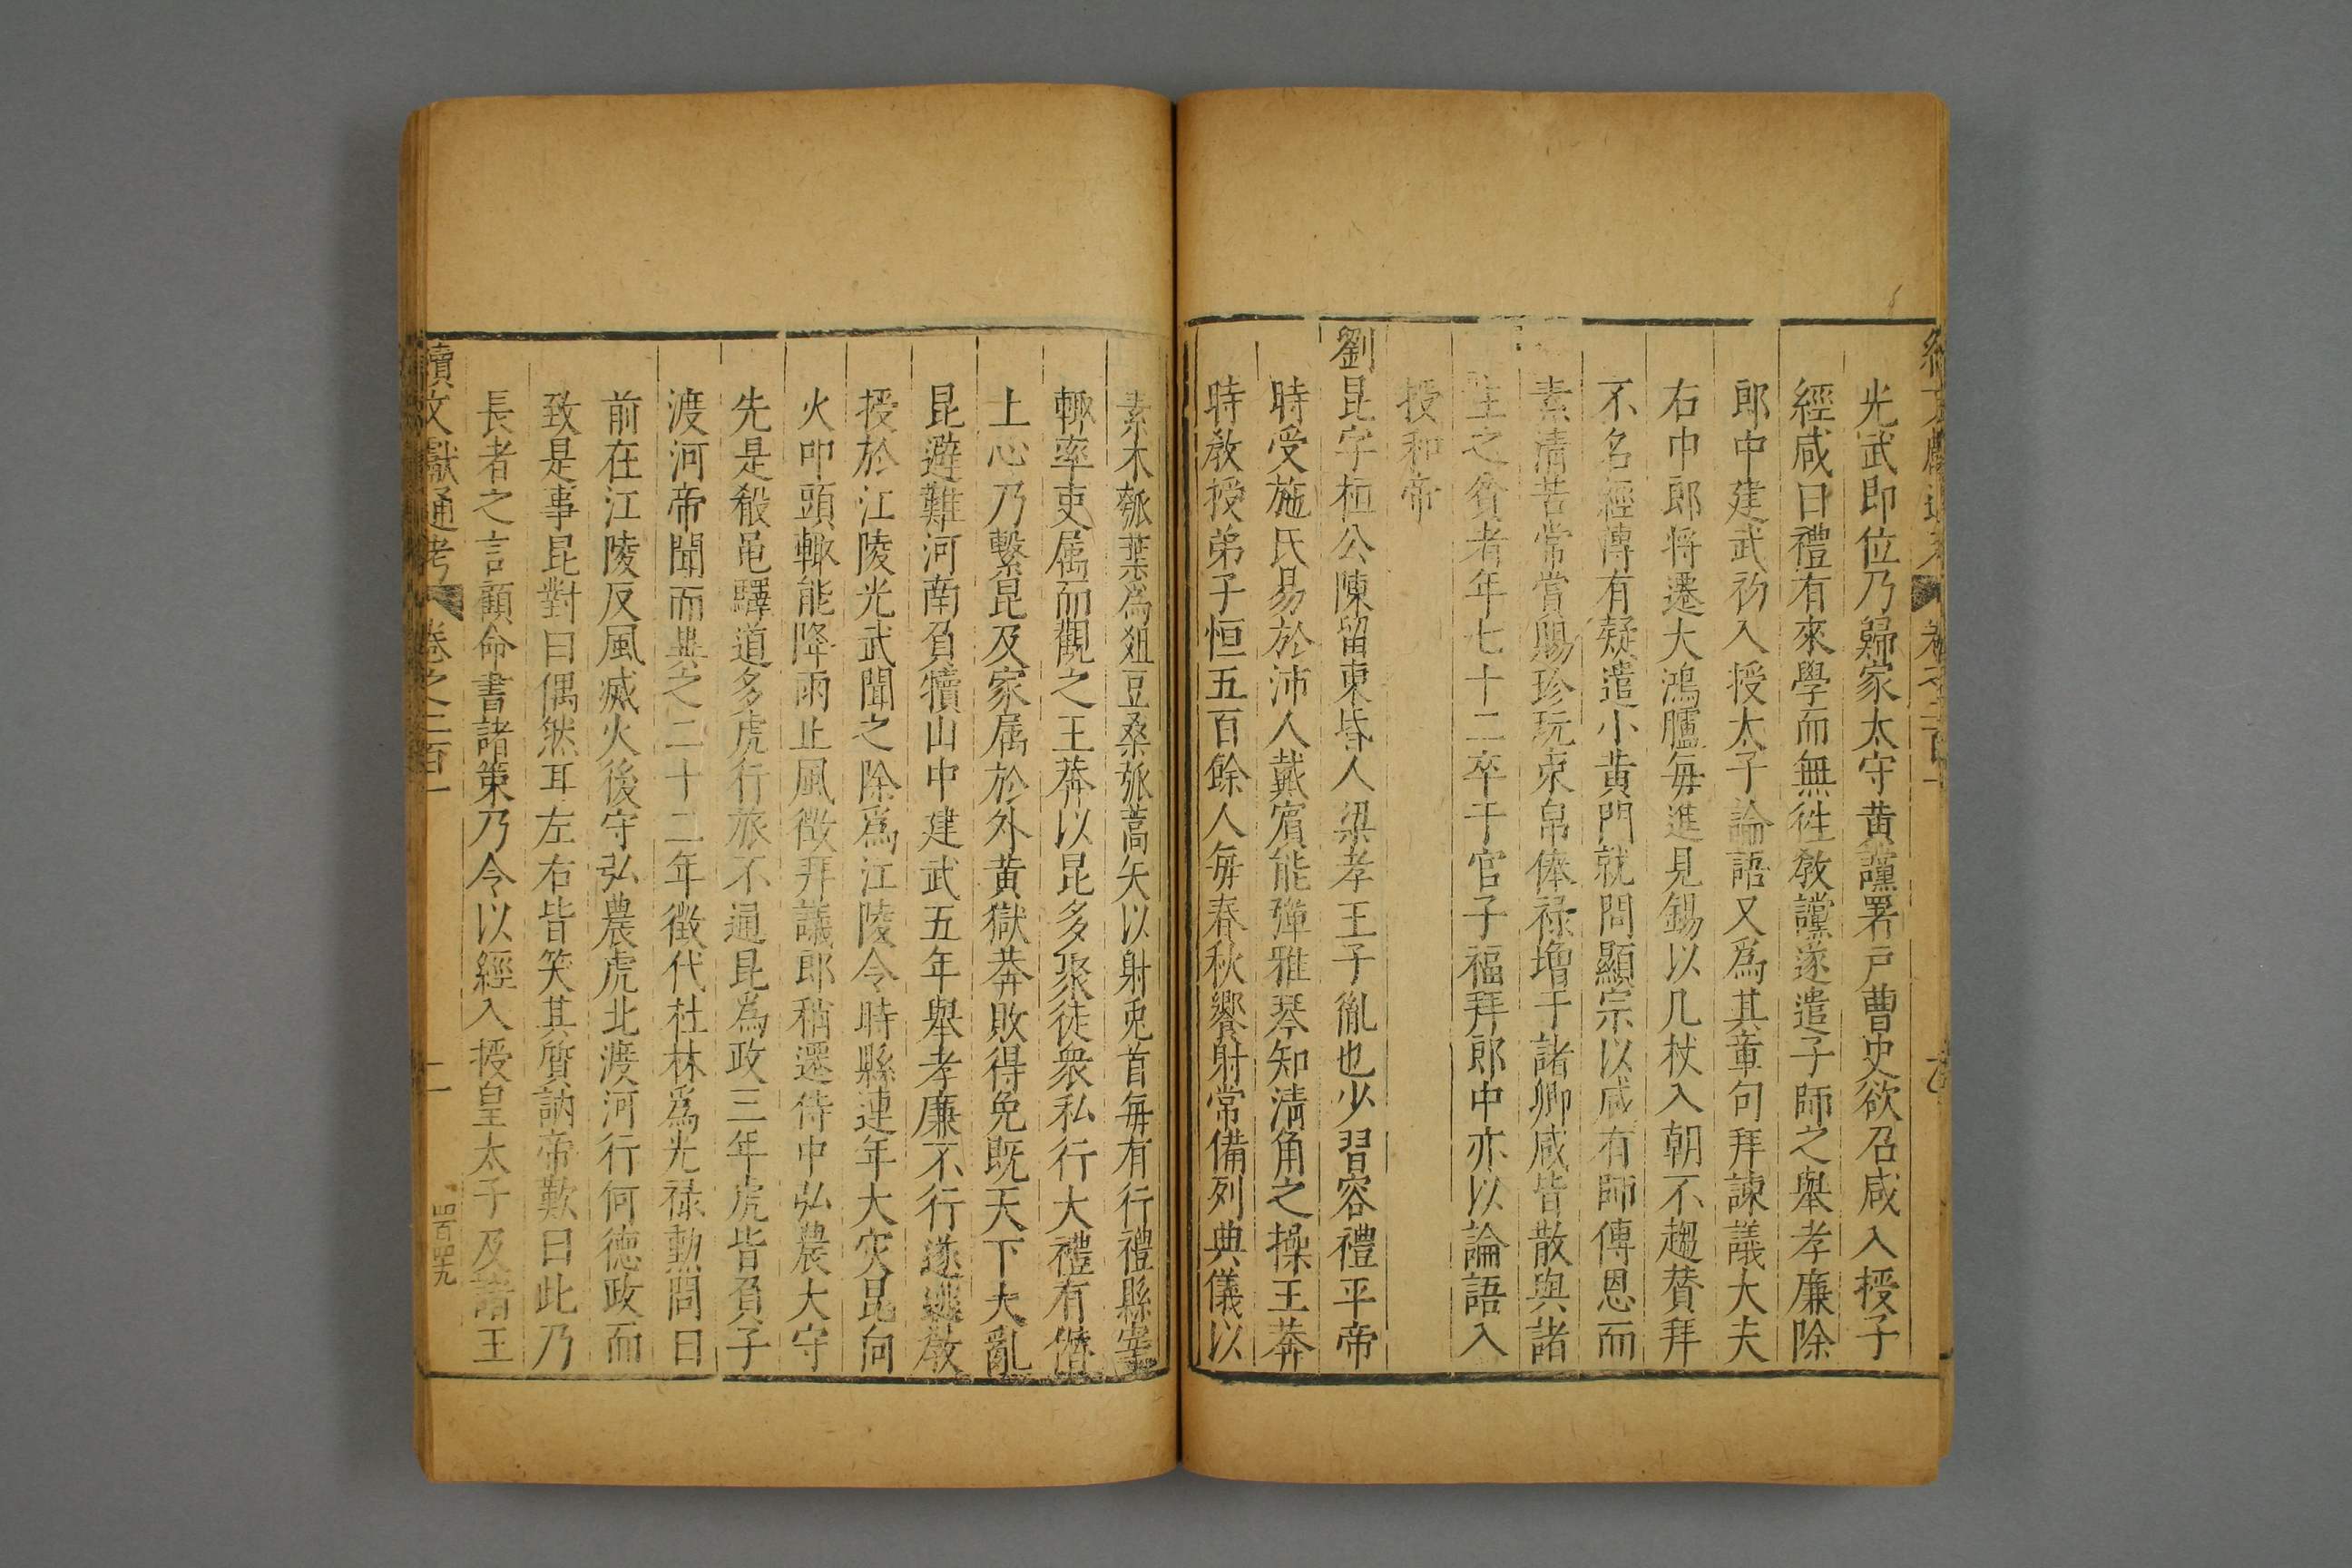 光武即位乃歸家太守黄讜署戸曹史欲召咸入授子
經咸曰禮有來學而無徃教讜遂遣子師之舉孝廉除
郎中建武初入授太子論語又爲其章句拜諫議大夫
右中郎將遷大鴻臚毎進見錫以几杖入朝不趨賛拜
不名經傳有疑遣小黄門就問顯宗以咸有師傅恩而
素清苦常賞賜珍玩束帛俸禄增于諸卿咸皆散與諸
生之貧者年七十二卒于官子福拜郎中亦以論語入
授和帝
劉昆字桓公陳留東昏人梁孝王子胤也少習容禮平帝
時受施氏易於沛人戴賔能彈雅琴知淸角之操王莽
時敎授弟子恒五百餘人毎春秋饗射常備列典儀以
素木瓠葉爲爼豆桑弧蒿矢以射兎首毎有行禮縣宰
輙率吏属而觀之王莽以昆多聚徒衆私行大禮有僭
上心乃繫昆及家属於外黄獄莽敗得免既天下大亂
昆避難河南負犢山中建武五年舉孝廉不行遂逃教
授於江陵光武聞之除爲江陵令時縣連年大灾昆向
火叩頭輙能降雨止風徴拜議郎稍遷侍中弘農大守
先是殽黽驛道多虎行旅不通昆為政三年虎皆負子
渡河帝聞而異之二十二年徴代杜林爲光禄勲問曰
前在江陵反風滅火後守弘農虎北渡河行何德政而
致是事昆對曰偶然耳左右皆笑其質訥帝歎曰此乃
長者之言顧命書諸策乃令以經入授皇太子及諸王
續文獻通考 卷之二百一 二 四百四九